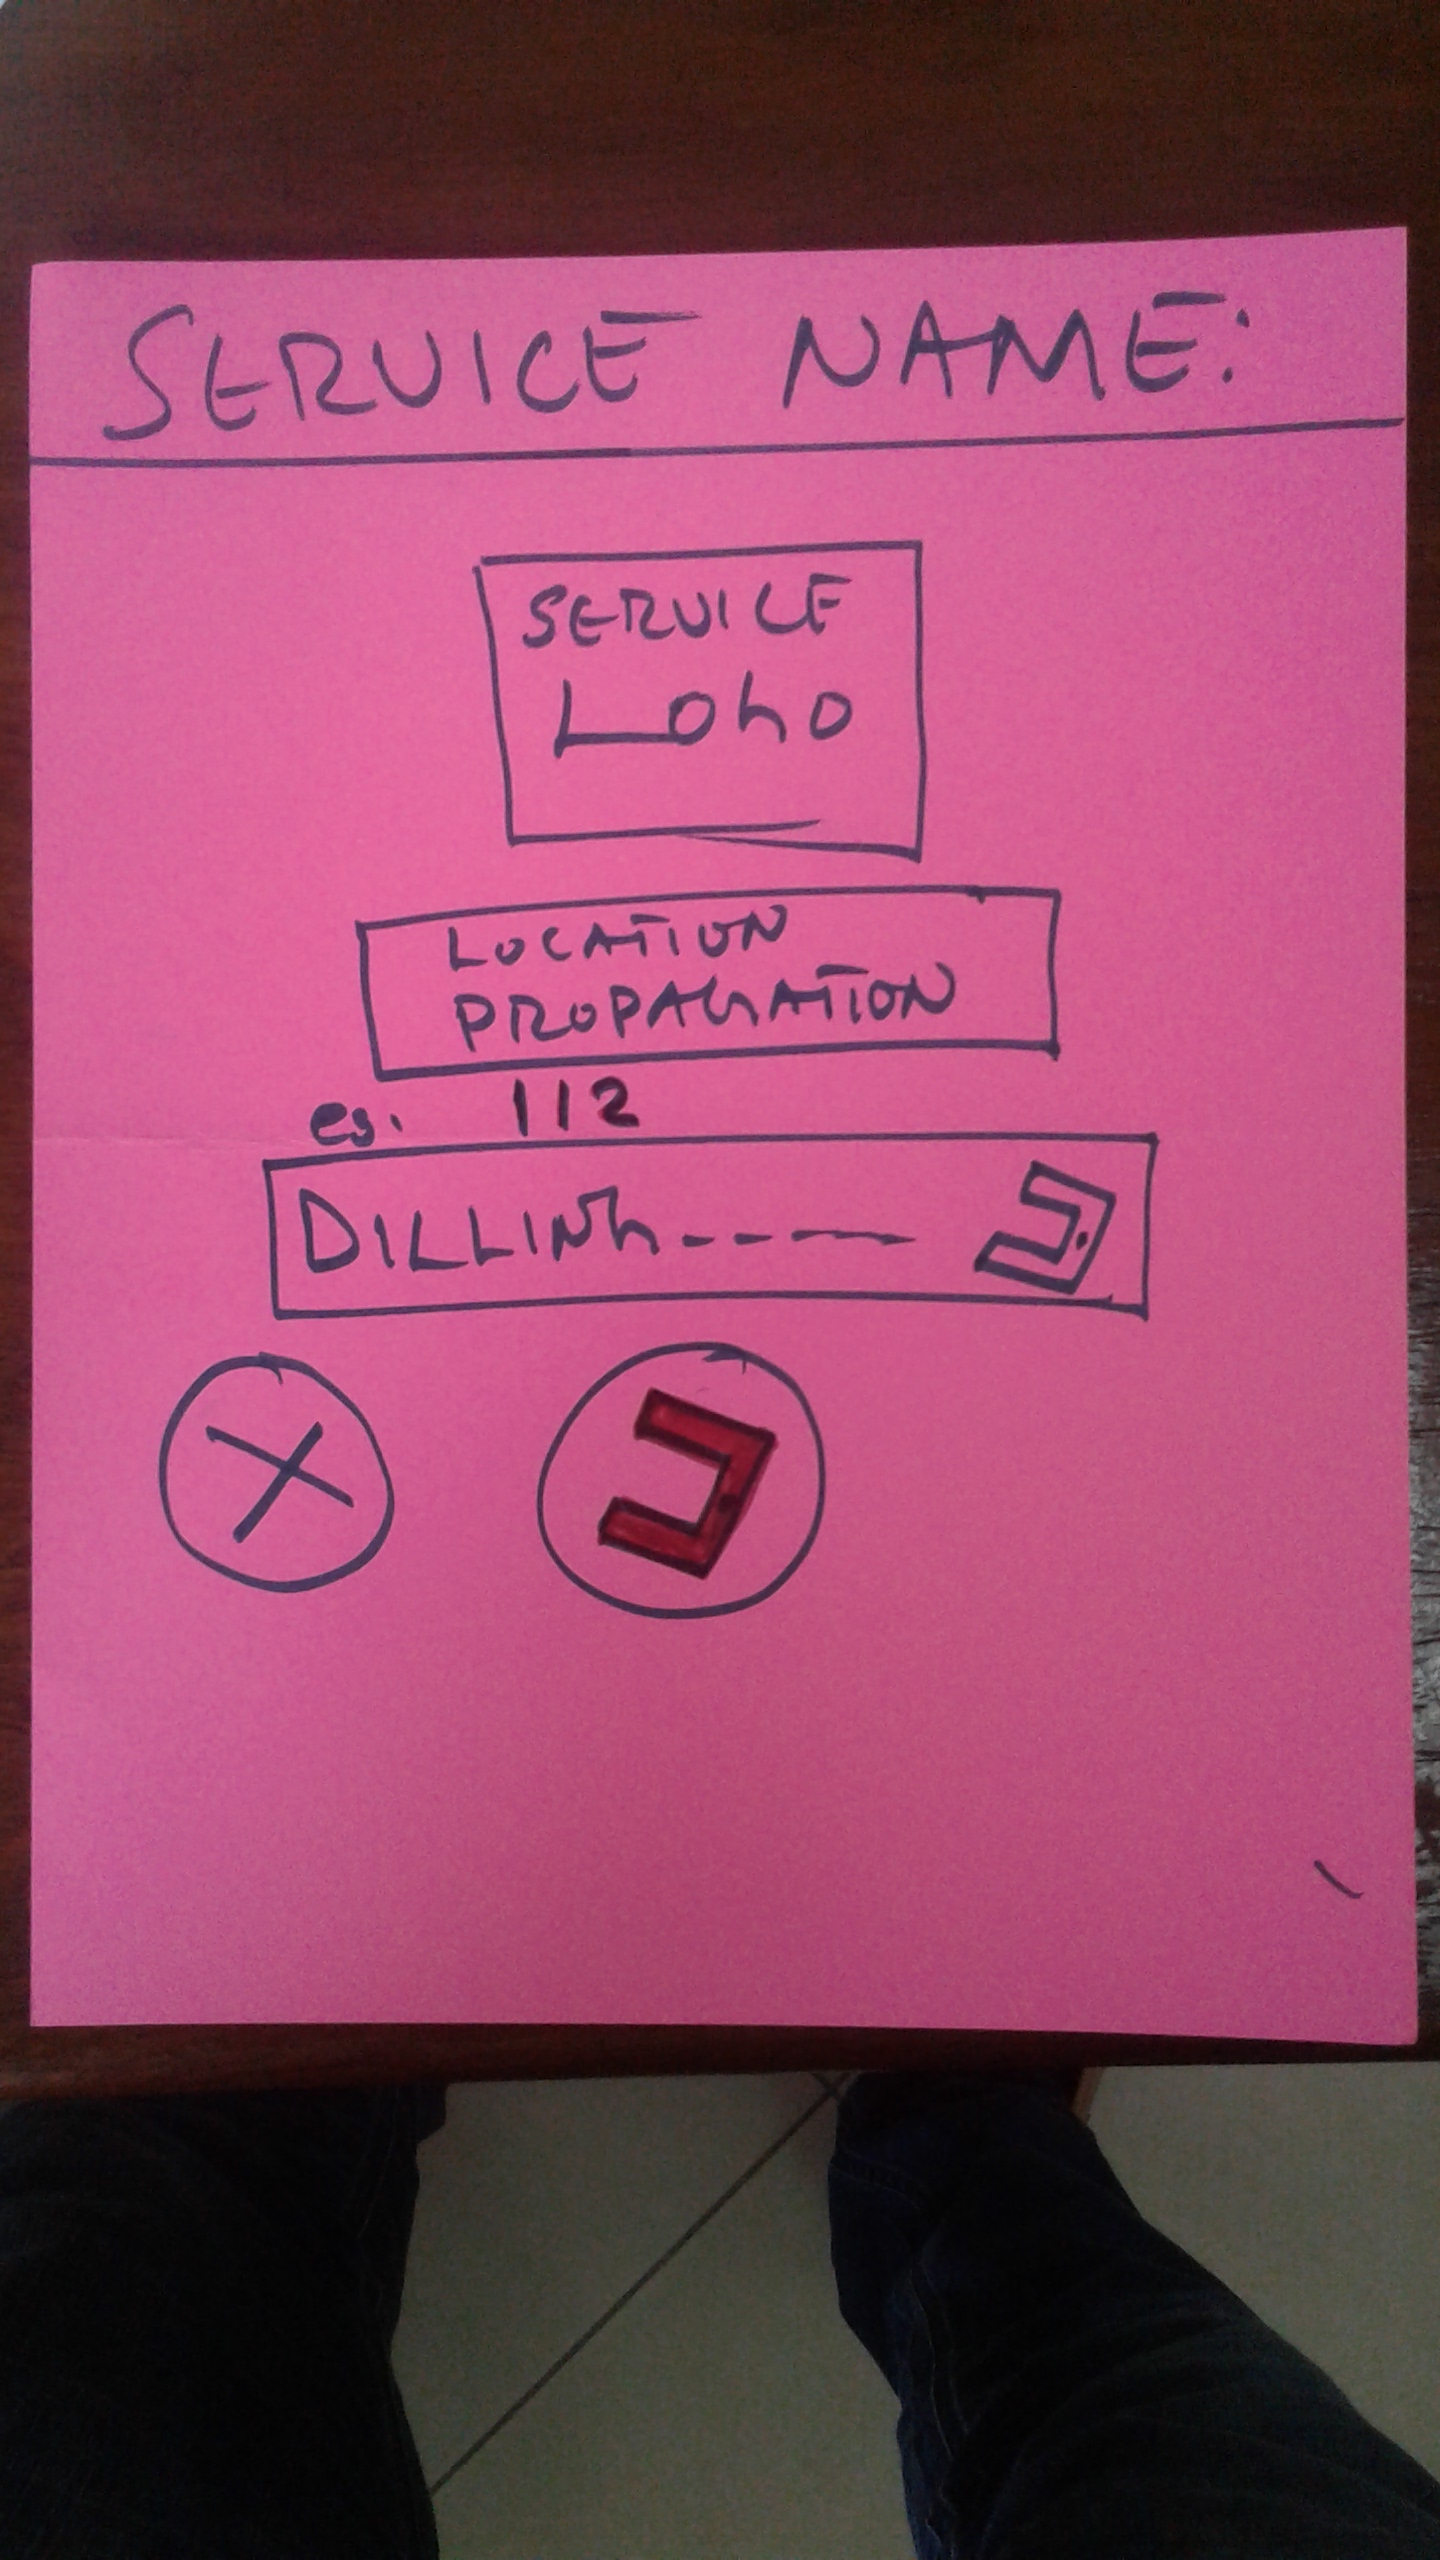 SERVICE NAME:
SERVICE
LOGO
LOCATION
PROPAGATION
es. 112
DILLING-----
X